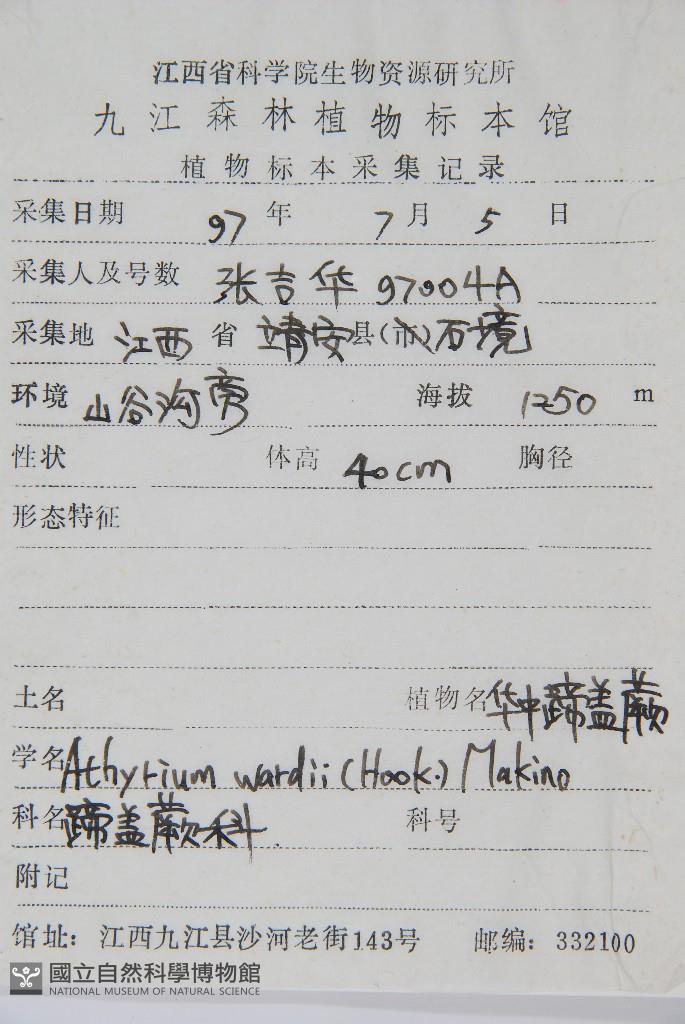 江西省科学院生物资源研究所
九江森林植物标本馆
植物标本采集记录
采集日期 97 年 7 月 5 日
采集人及号数 张吉华 97004A
采集地 江西 省 靖安 县(市) 石境
环境 山谷沟旁 海拔 1250 m
性状 体高 40cm 胸径
形态特征
土名 植物名 华中蹄盖蕨
学名 Athyrium wardii (Hook.) Makino
科名 蹄盖蕨科 科号
附记
馆址：江西九江县沙河老街143号 邮编：332100
國立自然科學博物館
NATIONAL MUSEUM OF NATURAL SCIENCE